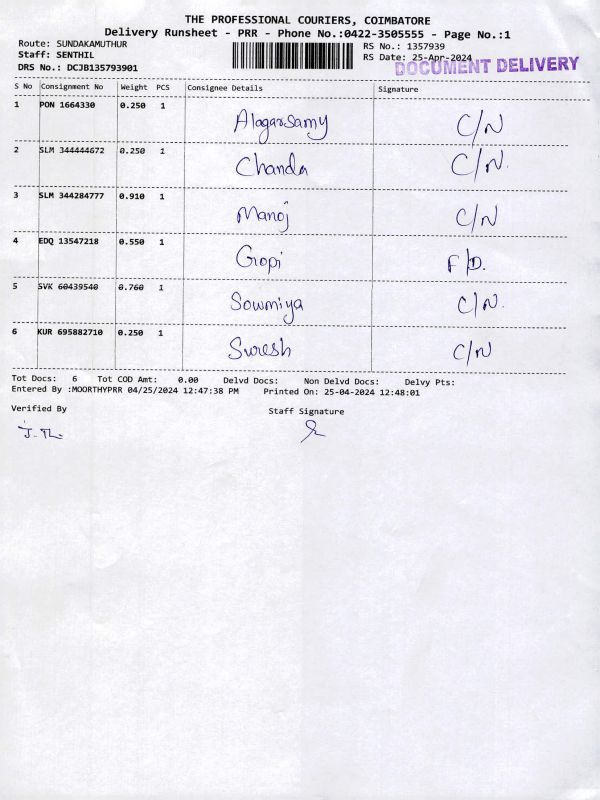 THE PROFESSIONAL COURIERS, COIMBATORE
Delivery Runsheet - PRR - Phone No.:0422-3505555 - Page No.:1
Route: SUNDAKAMUTHUR
Staff: SENTHIL
DRS No.: DCJB135793901
RS No.: 1357939
RS Date: 25-Apr-2024
DOCUMENT DELIVERY
S No Consignment No Weight PCS Consignee Details Signature
1 PON 1664330 0.250 1 Alagarsamy C/N
2 SLM 344444672 0.250 1 Chandra C/N.
3 SLM 344284777 0.910 1 Manoj C/N
4 EDQ 13547218 0.550 1 Gopi F/D.
5 SVK 60439540 0.760 1 Sowmiya C/N.
6 KUR 695882710 0.250 1 Suresh C/N
Tot Docs: 6 Tot COD Amt: 0.00 Delvd Docs: Non Delvd Docs: Delvy Pts:
Entered By :MOORTHYPRR 04/25/2024 12:47:38 PM Printed On: 25-04-2024 12:48:01
Verified By Staff Signature